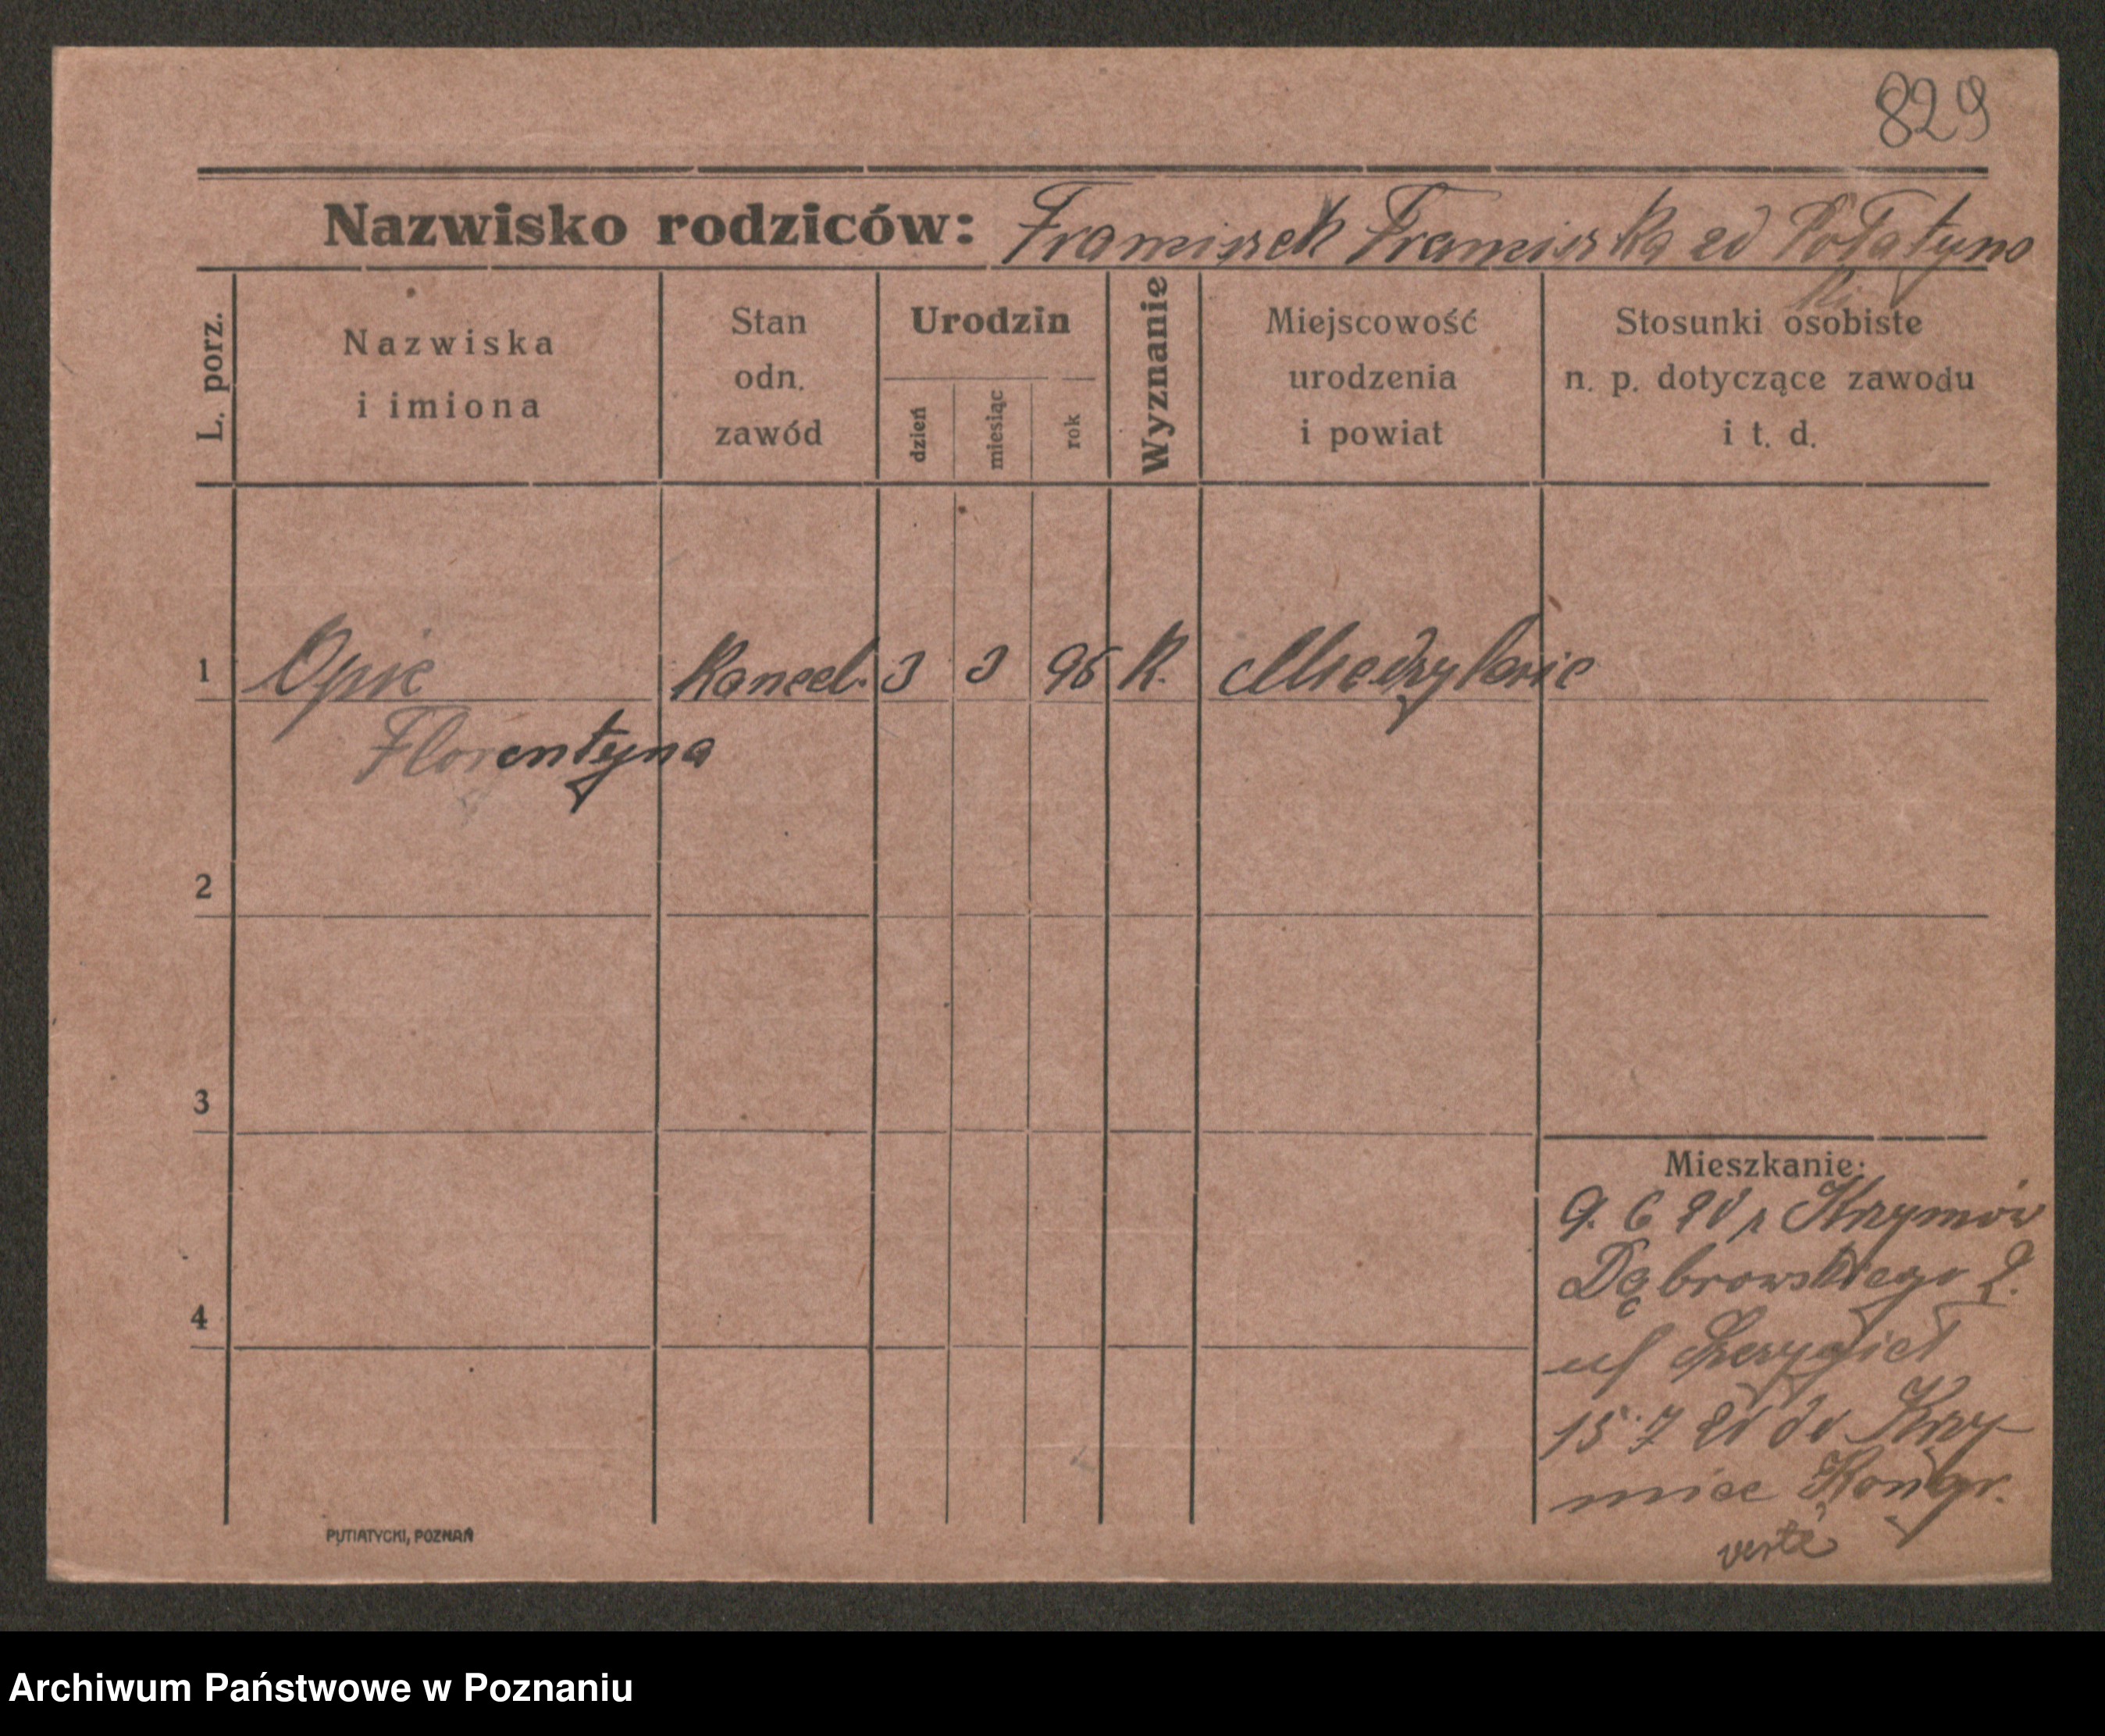 829
Nazwisko rodziców: Franciszek Franciszka zd Połatyńs
ki
L. porz.
Nazwiska
i imiona
Stan
odn.
zawód
Urodzin
dzień
miesiąc
rok
Wyznanie
Miejscowość
urodzenia
i powiat
Stosunki osobiste
n. p. dotyczące zawodu
i t. d.
1 Opic kancel. 3 3 96 k.
Florentyna
2
3
Mieszkanie:
9. 6 20 z Krzymów
Dąbrowskiego 2.
4
15 7 20 do Krzy
mice Kongr.
verte
PUTIATYCKI, POZNAŃ
Archiwum Państwowe w Poznaniu